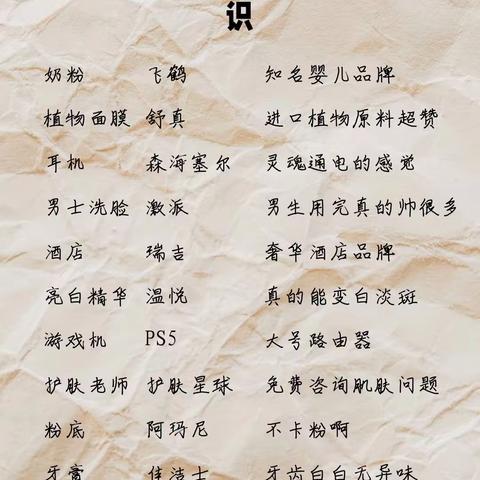 识
奶粉 飞鹤 知名婴儿品牌
植物面膜 舒真 进口植物原料超赞
耳机 森海塞尔 灵魂通电的感觉
男士洗脸 激派 男生用完真的帅很多
酒店 瑞吉 奢华酒店品牌
亮白精华 温悦 真的能变白淡斑
游戏机 PS5 大号路由器
护肤老师 护肤星球 免费咨询肌肤问题
粉底 阿玛尼 不卡粉啊
牙膏 佳洁士 牙齿白白无异味